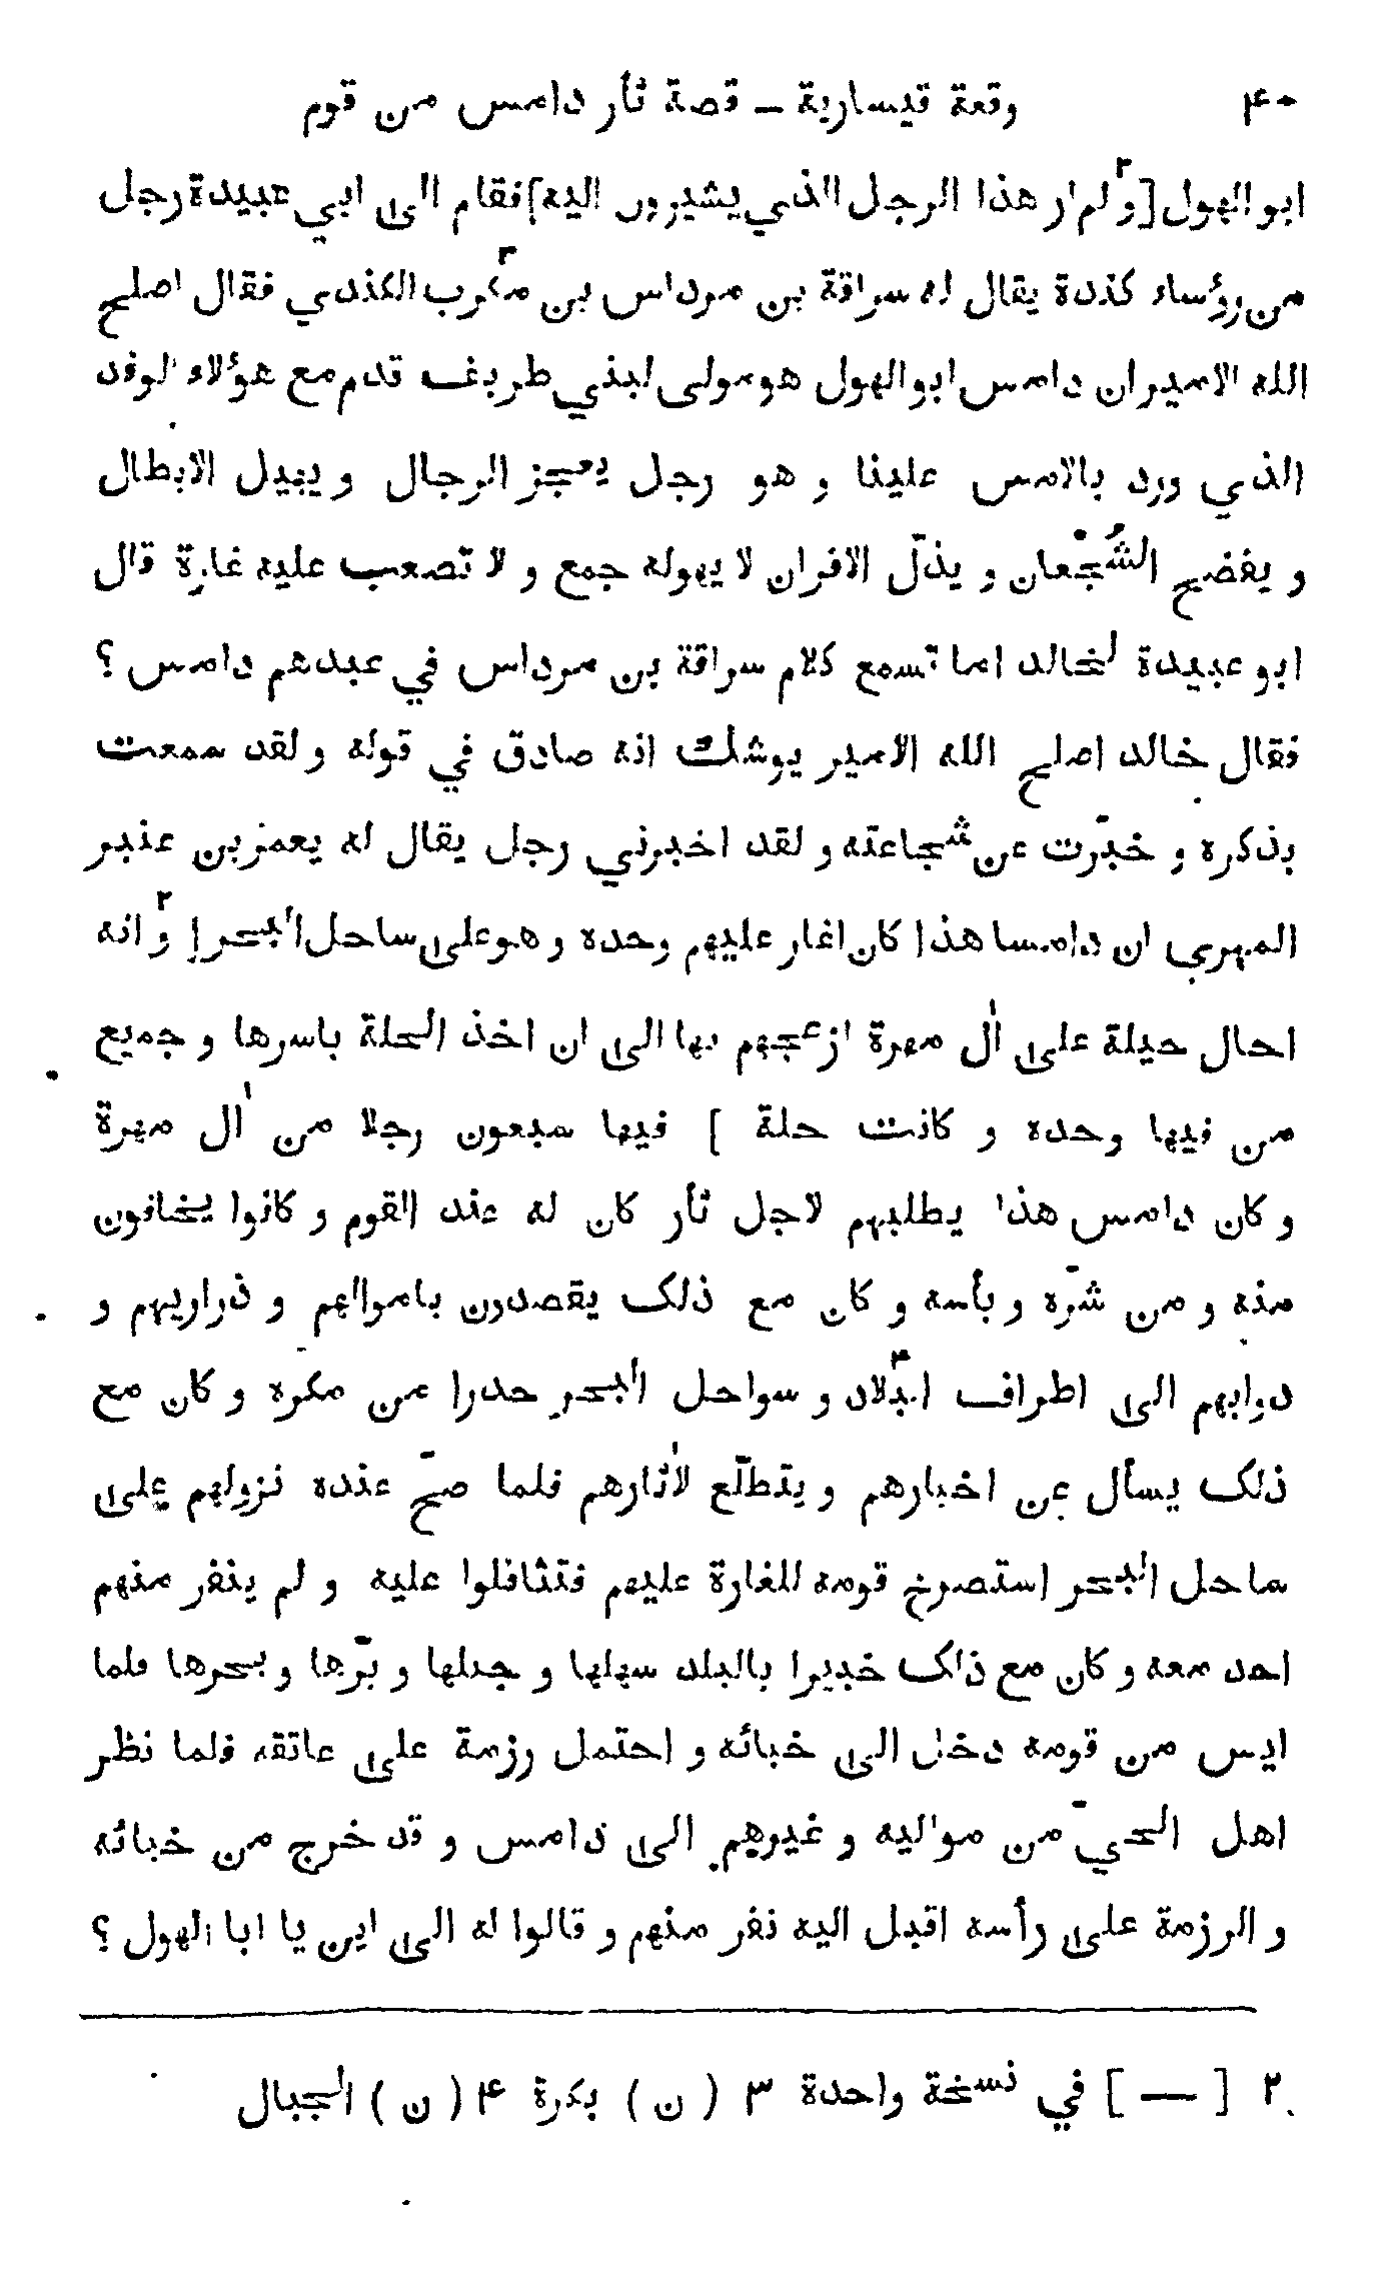 ۴۰ وقعة قيسارية — قصة ثأر دامس من قوم
ابو الهول [و۲ لم ار هذا الرجل الذي يشيرون اليه] فقام الى ابي عبيدة رجل
من رؤساء كندة يقال له سراقة بن مرداس بن مكرب۳ الكندي فقال اصلح
الله الامير ان دامس ابو الهول هو مولى لبني طريف قدم مع هؤلاء الوفد
الذي ورد بالامس علينا و هو رجل يعجز الرجال و يبيل الابطال
و يفضح الشُجْعان و يذلّ الاقران لا يهوله جمع و لا تصعب عليه غارة قال
ابو عبيدة لخالد اما تسمع كلام سراقة بن مرداس في عبدهم دامس ؟
فقال خالد اصلح الله الامير يوشك انه صادق في قوله و لقد سمعت
بذكره و خبّرت عن شجاعته و لقد اخبرني رجل يقال له يعمر بن عنبر
المهري ان دامسا هذا كان اغار عليهم وحده و هو على ساحل البحر [ و۲ انه
احال حيلة على اٰل مهرة ازعجهم بها الى ان اخذ الحلة باسرها و جميع
من فيها وحده و كانت حلة ] فيها سبعون رجلا من اٰل مهرة
و كان دامس هذا يطلبهم لاجل ثأر كان له عند القوم و كانوا يخافون
منه و من شرّه و بأسه و كان مع ذلك يقصدون باموالهم و ذراريهم و
دوابهم الى اطراف البلاد۴ و سواحل البحر حدرا من مكره و كان مع
ذلك يسأل عن اخبارهم و يتطلّع لاٰثارهم فلما صحّ عنده نزولهم على
ساحل البحر استصرخ قومه للغارة عليهم فتثاقلوا عليه و لم ينفر منهم
احد معه و كان مع ذلك خبيرا بالبلد سهلها و جبلها و برّها و بحرها فلما
ايس من قومه دخل الى خبائه و احتمل رزمة على عاتقه فلما نظر
اهل الحيّ من مواليه و غيرهم الى دامس و قد خرج من خبائه
و الرزمة على رأسه اقبل اليه نفر منهم و قالوا له الى اين يا ابا الهول ؟
۲ [ — ] في نسخة واحدة ۳ ( ن ) بكرة ۴ ( ن ) الجبال